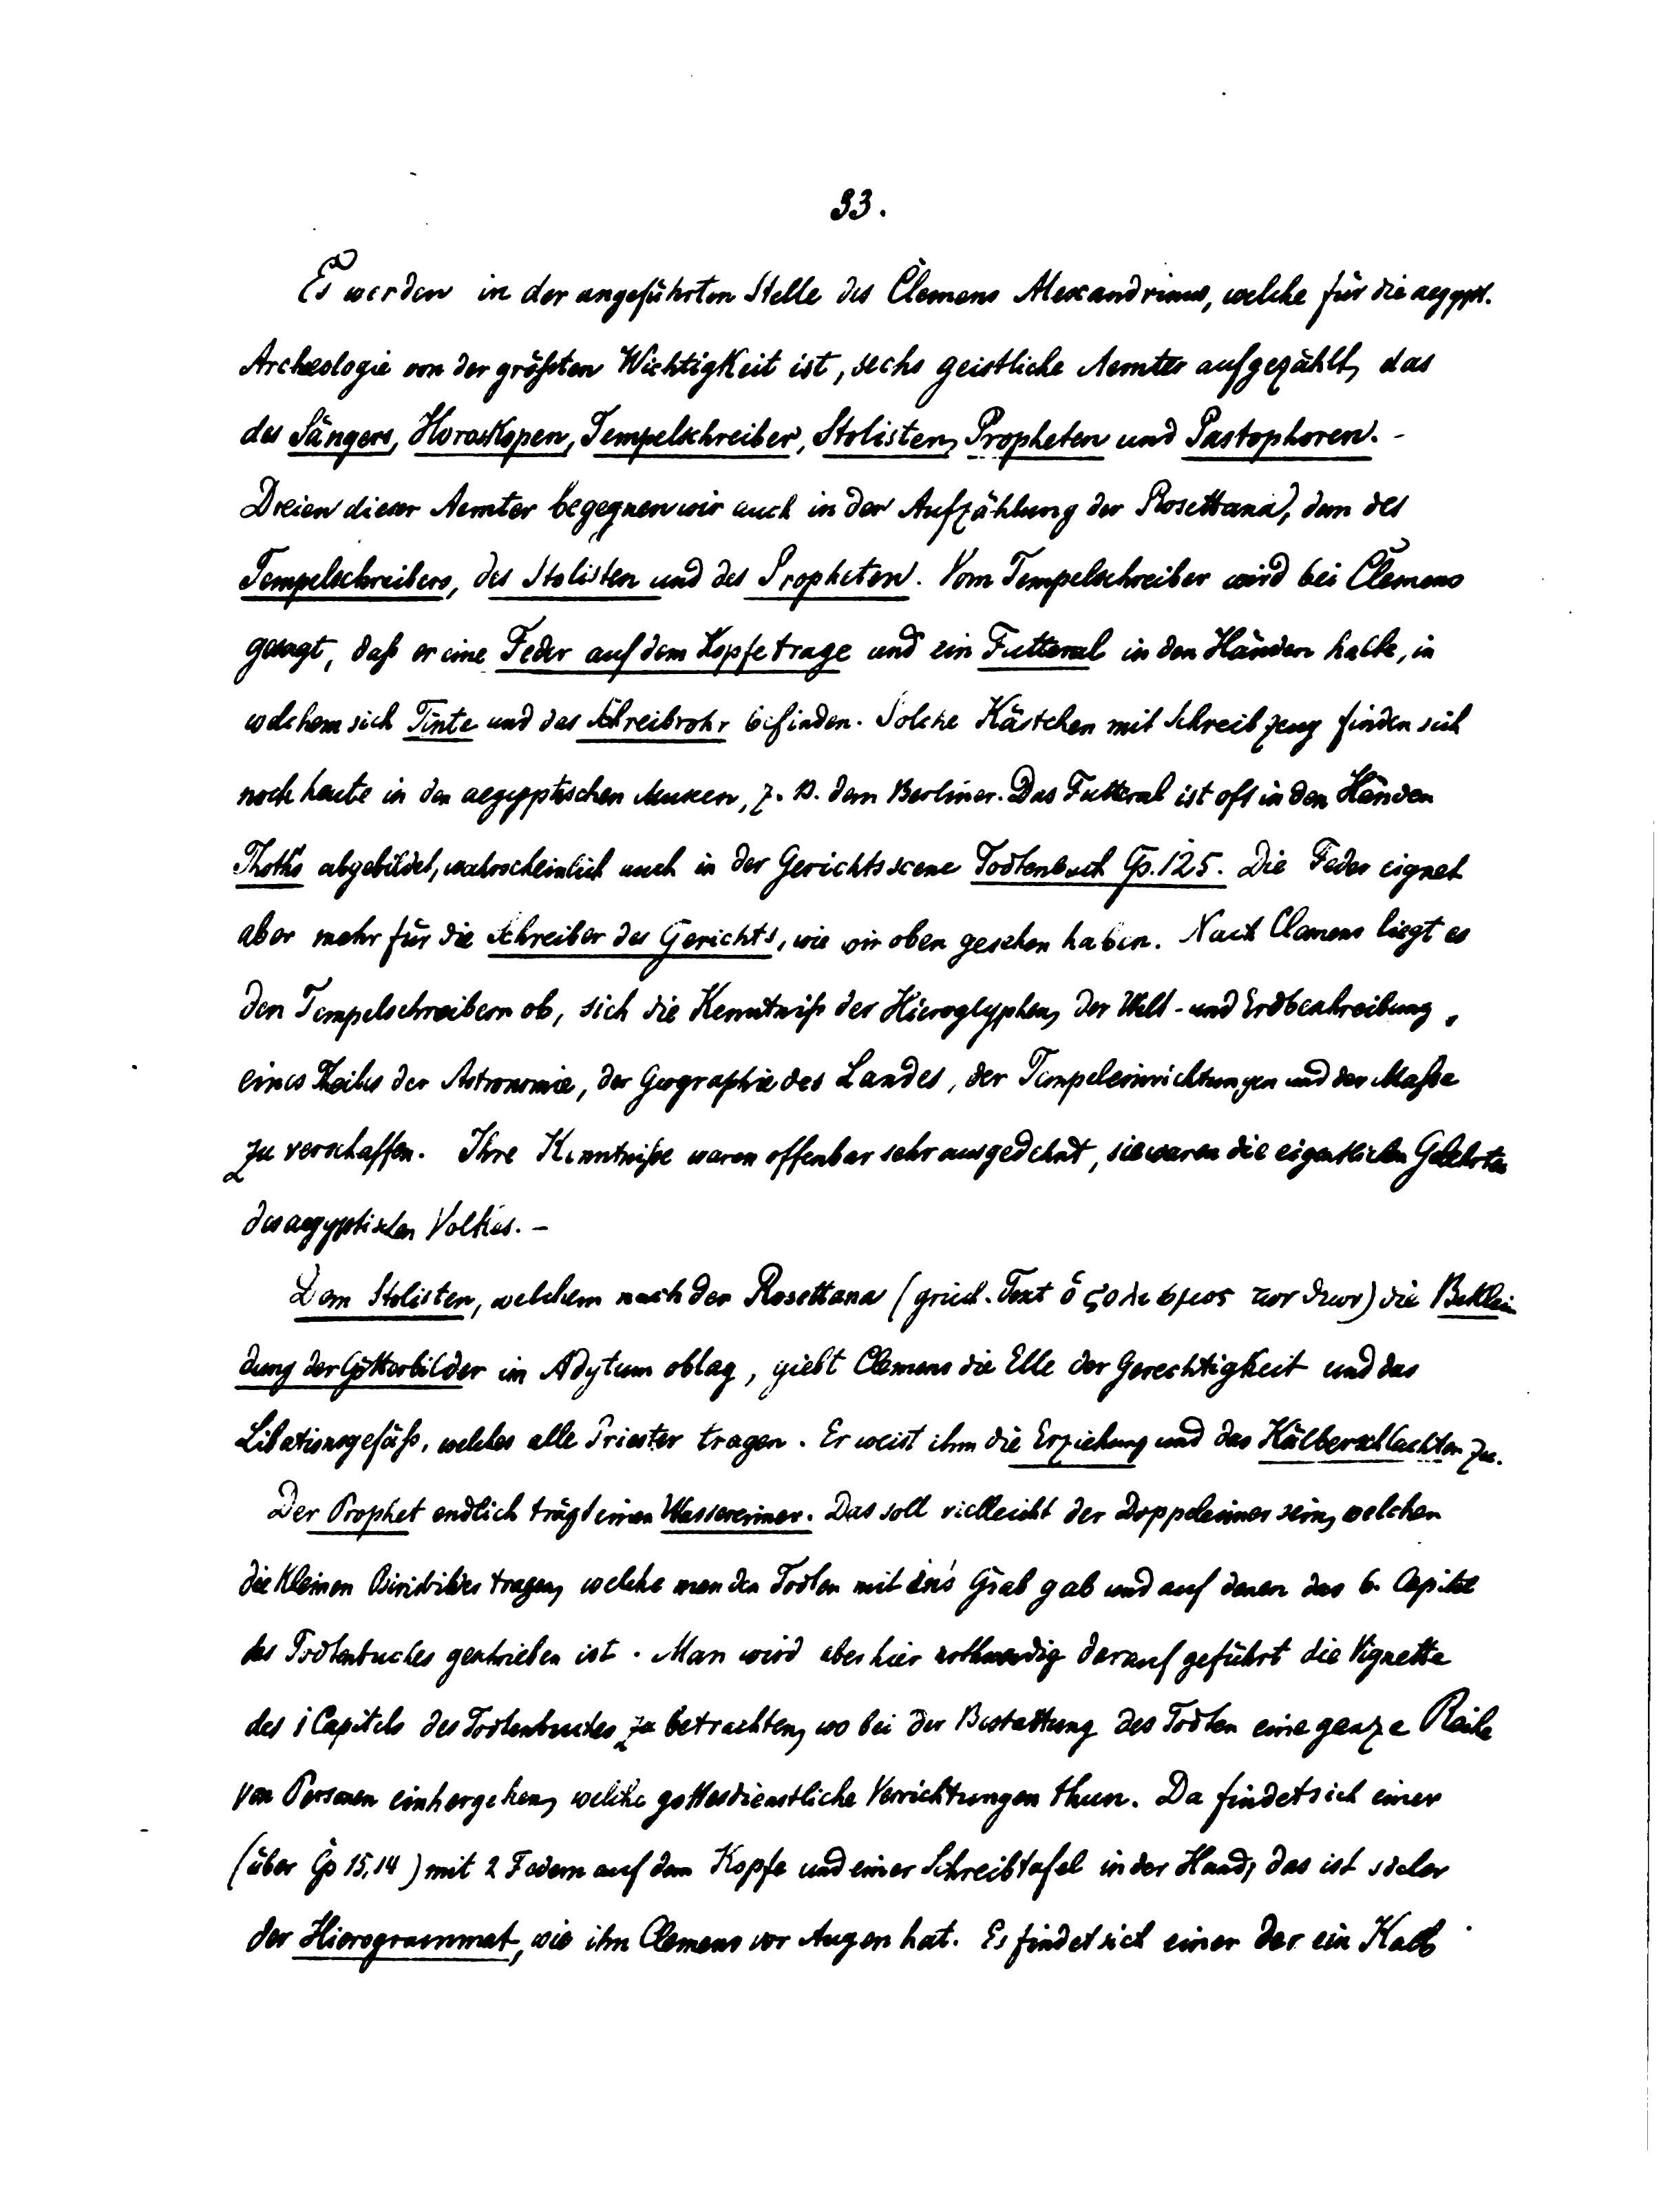 33.
Es werden in der angeführten Stelle des Clemens Alexandrinus, welche für die aegypt.
Archæologie von der größten Wichtigkeit ist, sechs geistliche Aemter aufgezählt, das
des Sängers, Horoskopen, Tempelschreiber, Stolisten, Propheten und Pastophoren. -
Dreien dieser Aemter begegnen wir auch in der Aufzählung der Rosettana, dem des
Tempelschreibers, des Stolisten und des Propheten. Vom Tempelschreiber wird bei Clemens
gesagt, daß er eine Feder auf dem Kopfe trage und ein Futteral in den Händen halte, in
welchem sich Tinte und das Schreibrohr befinden. Solche Kästchen mit Schreibzeug finden sich
noch heute in den aegyptischen Museen, z. B. dem Berliner. Das Futteral ist oft in den Händen
Thoth's abgebildet, wahrscheinlich auch in der Gerichtsscene Todtenbuch Cp. 125. Die Feder eignet
aber mehr für die Schreiber des Gerichts, wie wir oben gesehen haben. Nach Clemens liegt es
den Tempelschreibern ob, sich die Kenntniß der Hieroglyphen, der Welt- und Erdbeschreibung,
eines Theiles der Astronomie, der Geographie des Landes, der Tempeleinrichtungen und der Maße
zu verschaffen. Ihre Kenntniße waren offenbar sehr ausgedehnt, sie waren die eigentlichen Gelehrten
des aegyptischen Volkes. -
Dem Stolisten, welchem nach der Rosettana (griech. Text ὁ ςολισμος των θεων) die Beklei
dung der Götterbilder im Adytum oblag, giebt Clemens die Elle der Gerechtigkeit und das
Libationsgefäß, welches alle Priester tragen. Er weist ihm die Erziehung und das Kälberschlachten zu.
Der Prophet endlich trägt einen Wassereimer. Das soll vielleicht der Doppeleimer sein, welchen
die kleinen Osirisbilder tragen, welche man den Todten mit in's Grab gab und auf denen das 6. Capitel
des Todtenbuches geschrieben ist. Man wird aber hier nothwendig darauf geführt die Vignette
des 1 Capitels des Todtenbuches zu betrachten, wo bei der Bestattung des Todten eine ganze Reihe
von Personen einhergehen, welche gottesdienstliche Verrichtungen thun. Da findet sich einer
(über Cp 15,14) mit 2 Federn auf dem Kopfe und einer Schreibtafel in der Hand, das ist sicher
der Hierogrammat, wie ihn Clemens vor Augen hat. Es findet sich einer der ein Kalb